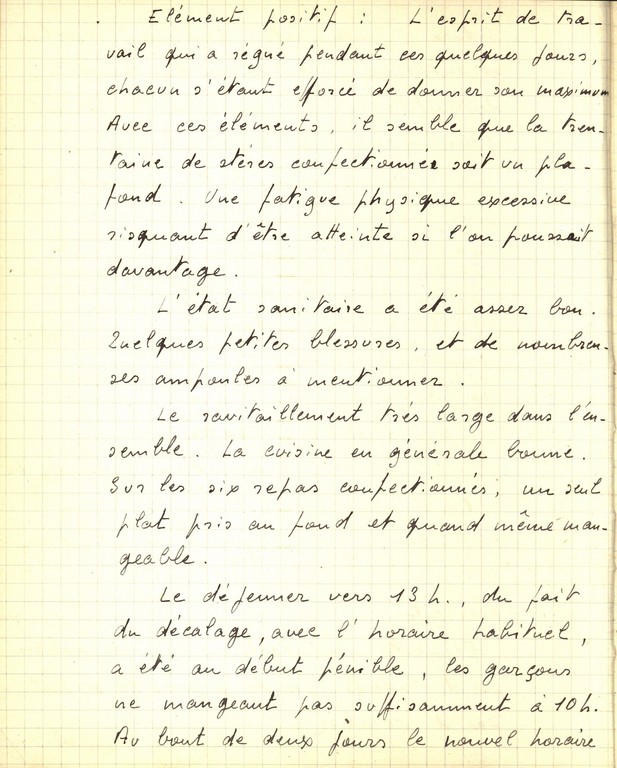 . Elément positif : L'esprit de tra-
vail qui a régné pendant ces quelques jours,
chacun s'étant efforcé de donner son maximum
Avec ces éléments, il semble que la tren-
taine de stères confectionnée soit un pla-
fond. Une fatigue physique excessive
risquant d'être atteinte si l'on poussait
davantage.
L'état sanitaire a été assez bon.
Quelques petites blessures, et de nombreu-
ses ampoules à mentionner.
Le ravitaillement très large dans l'en-
semble. La cuisine en générale bonne.
Sur les six repas confectionnés, un seul
plat pris au fond et quand même man-
geable.
Le déjeuner vers 13 h., du fait
du décalage, avec l'horaire habituel,
a été au début pénible, les garçons
ne mangeant pas suffisamment à 10h.
Au bout de deux jours le nouvel horaire